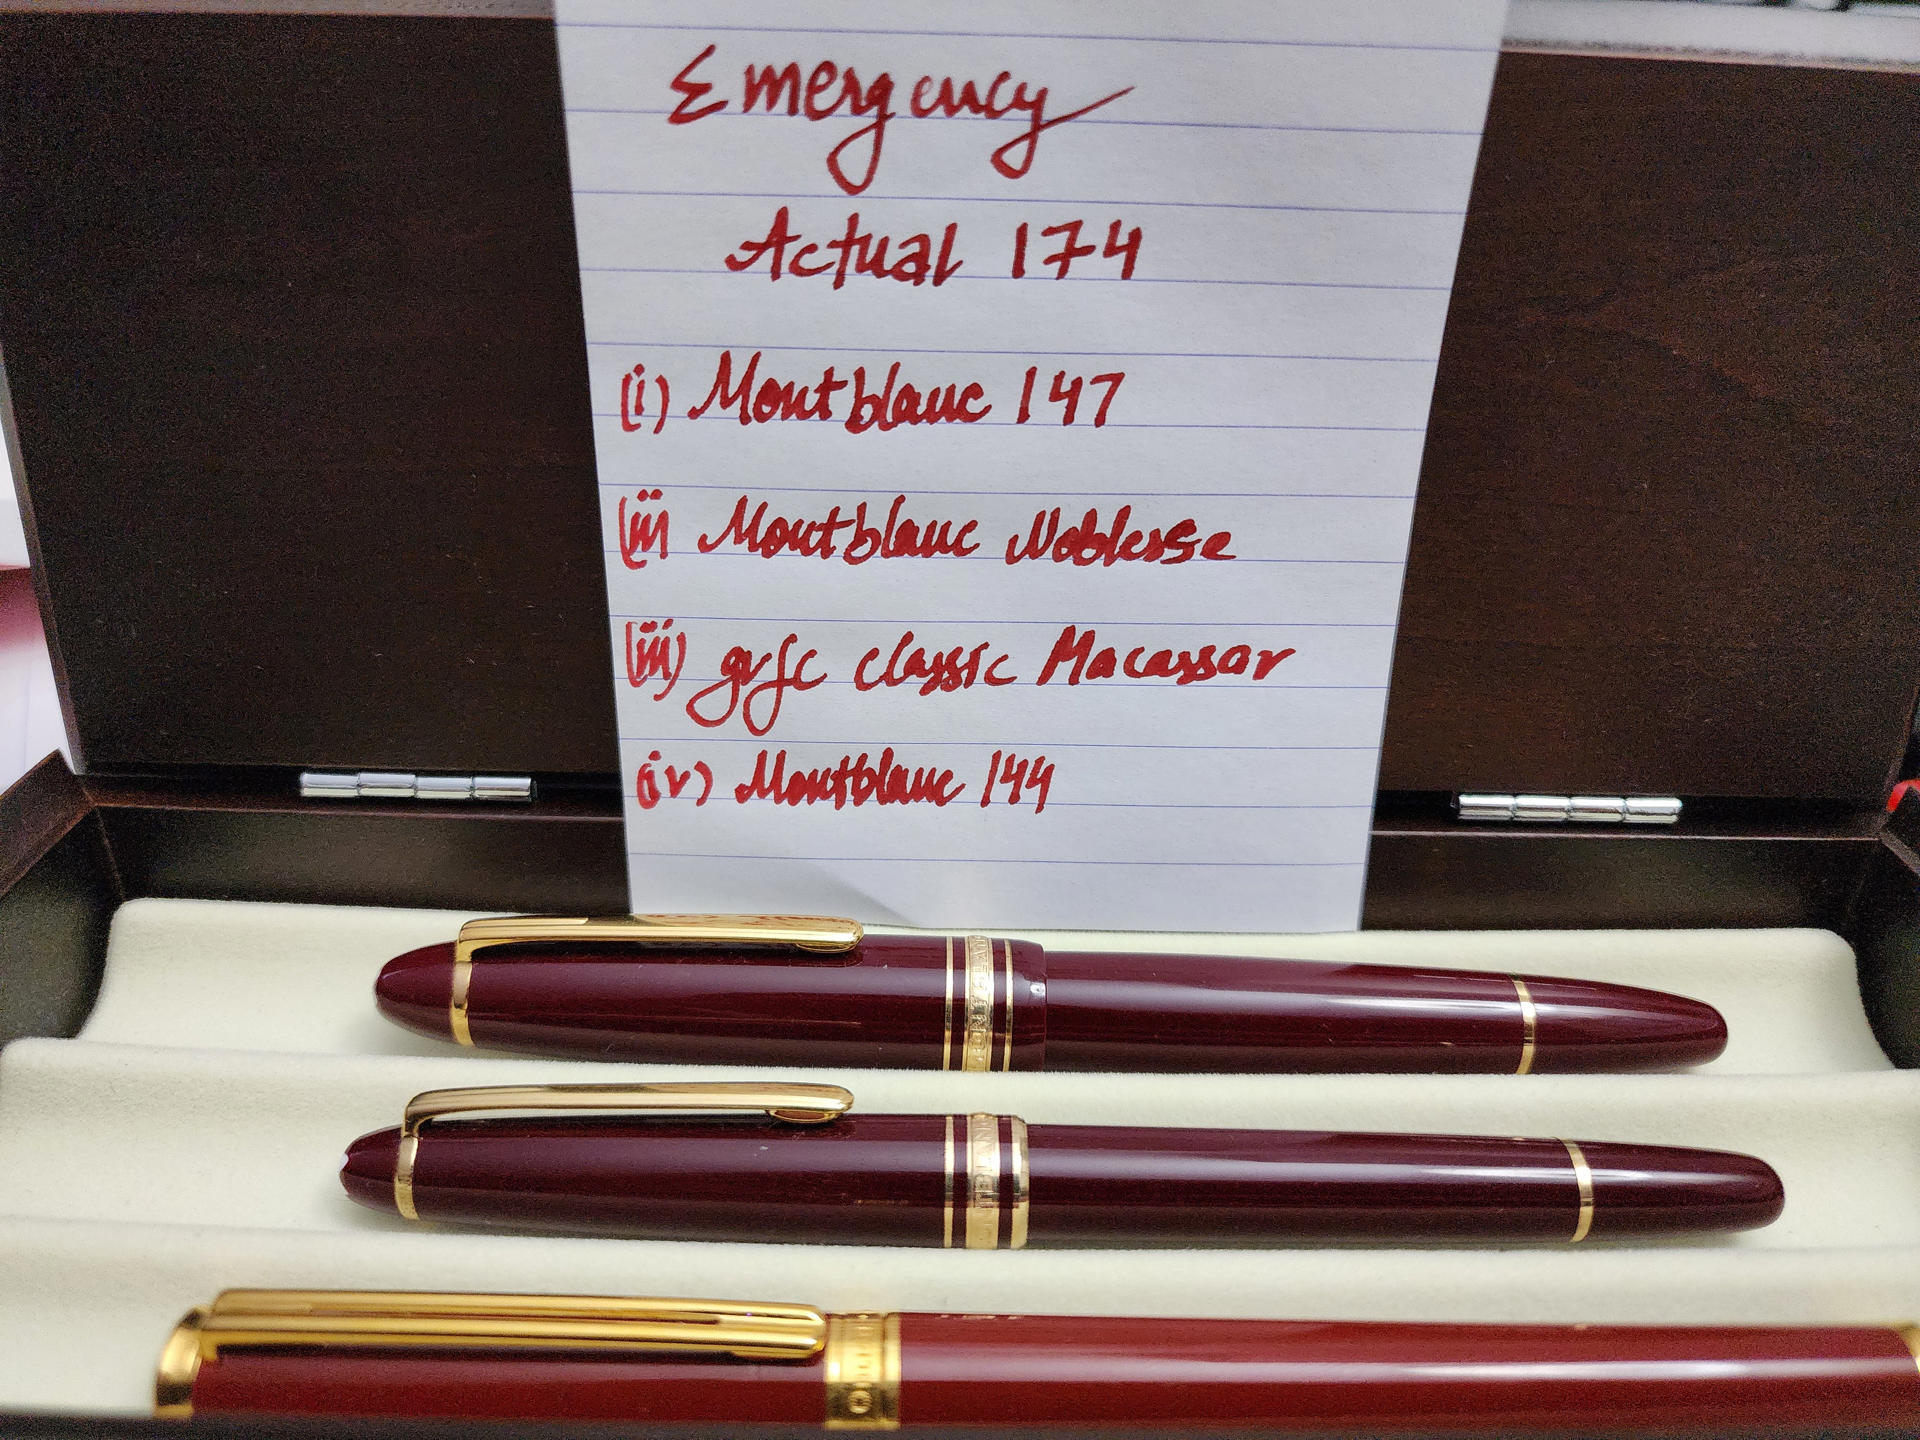 Emergency
Actual 174
(i) Montblanc 147
(ii Montblanc Noblesse
(iii) gvfc classic Macassar
(iv) Montblanc 144